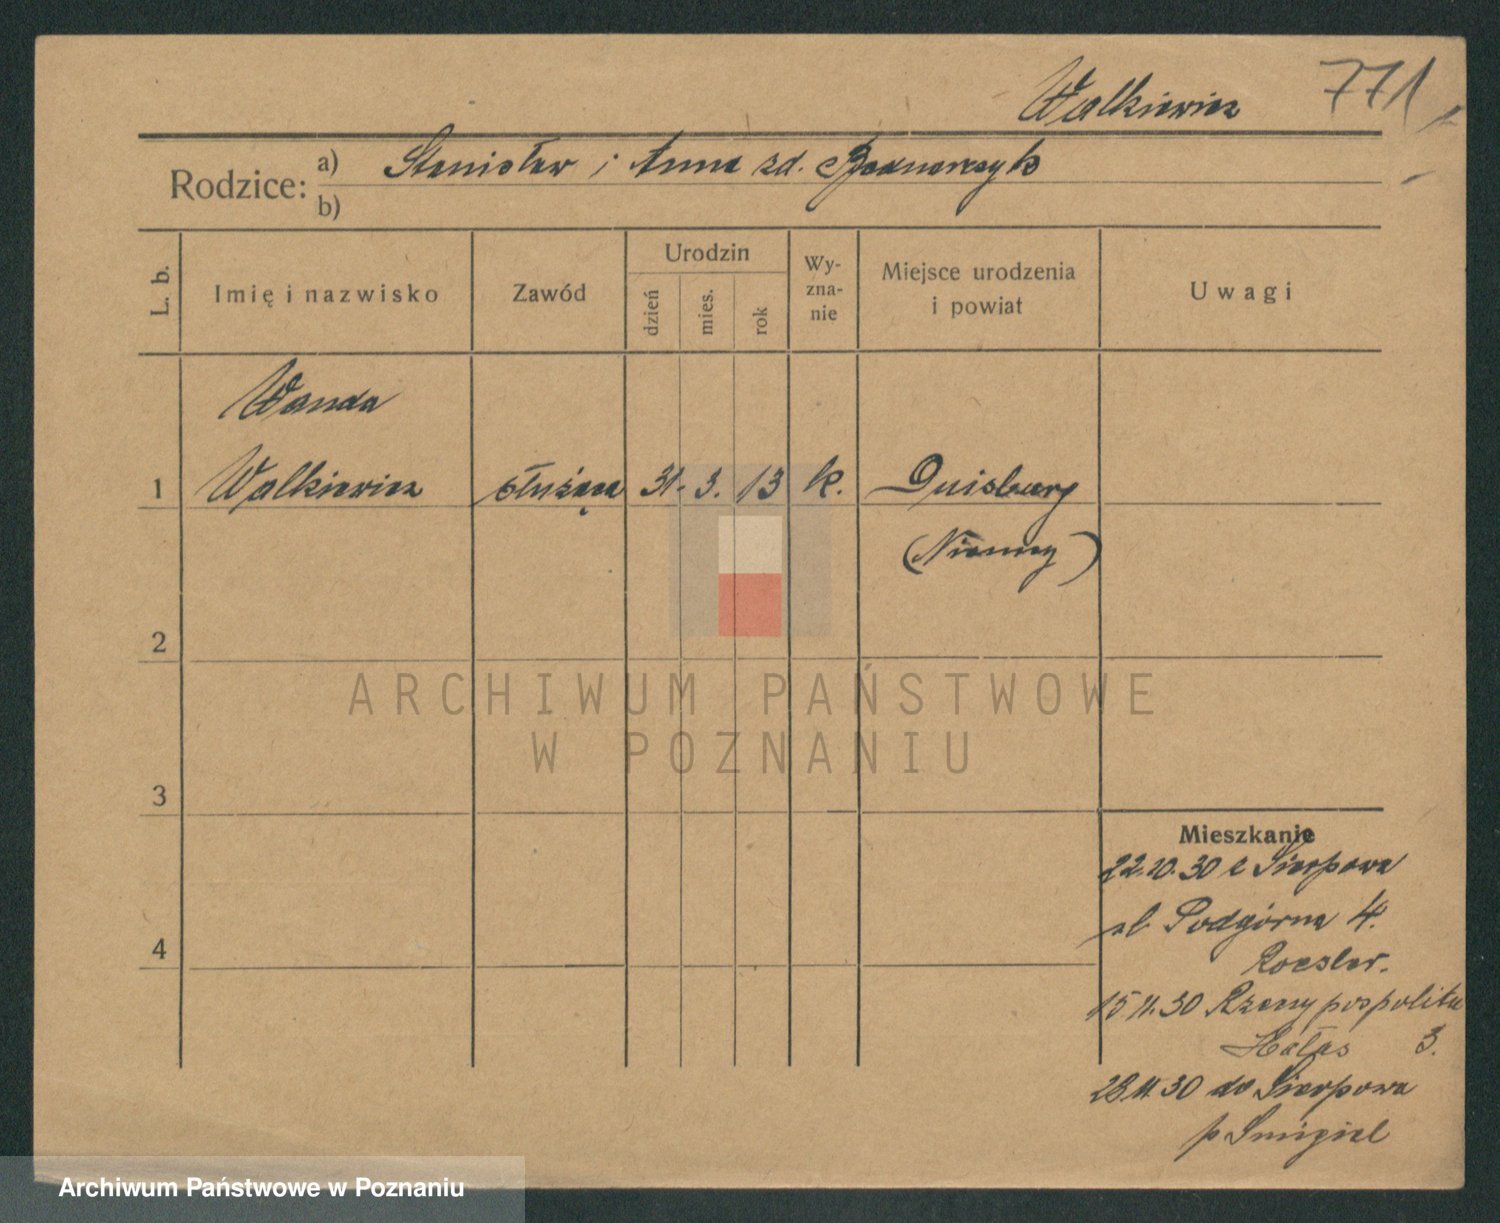 Walkiewicz 771
Rodzice: a) Stanisław i Anna zd. Bednarczyk
b)
L. b. Imię i nazwisko Zawód Urodzin dzień mies. rok Wyznanie Miejsce urodzenia i powiat Uwagi
Wanda
1 Walkiewicz służąca 31. 3. 13 k. Duisburg
(Niemcy)
2
ARCHIWUM PAŃSTWOWE
W POZNANIU
3
Mieszkanie
22.10.30 z Sierpowa
ul Podgórna 4.
4
Roesler.
15.11.30 Rzeczypospolitej
Hałas 3.
28.11.30 do Sierpowa
p Śmigiel
Archiwum Państwowe w Poznaniu